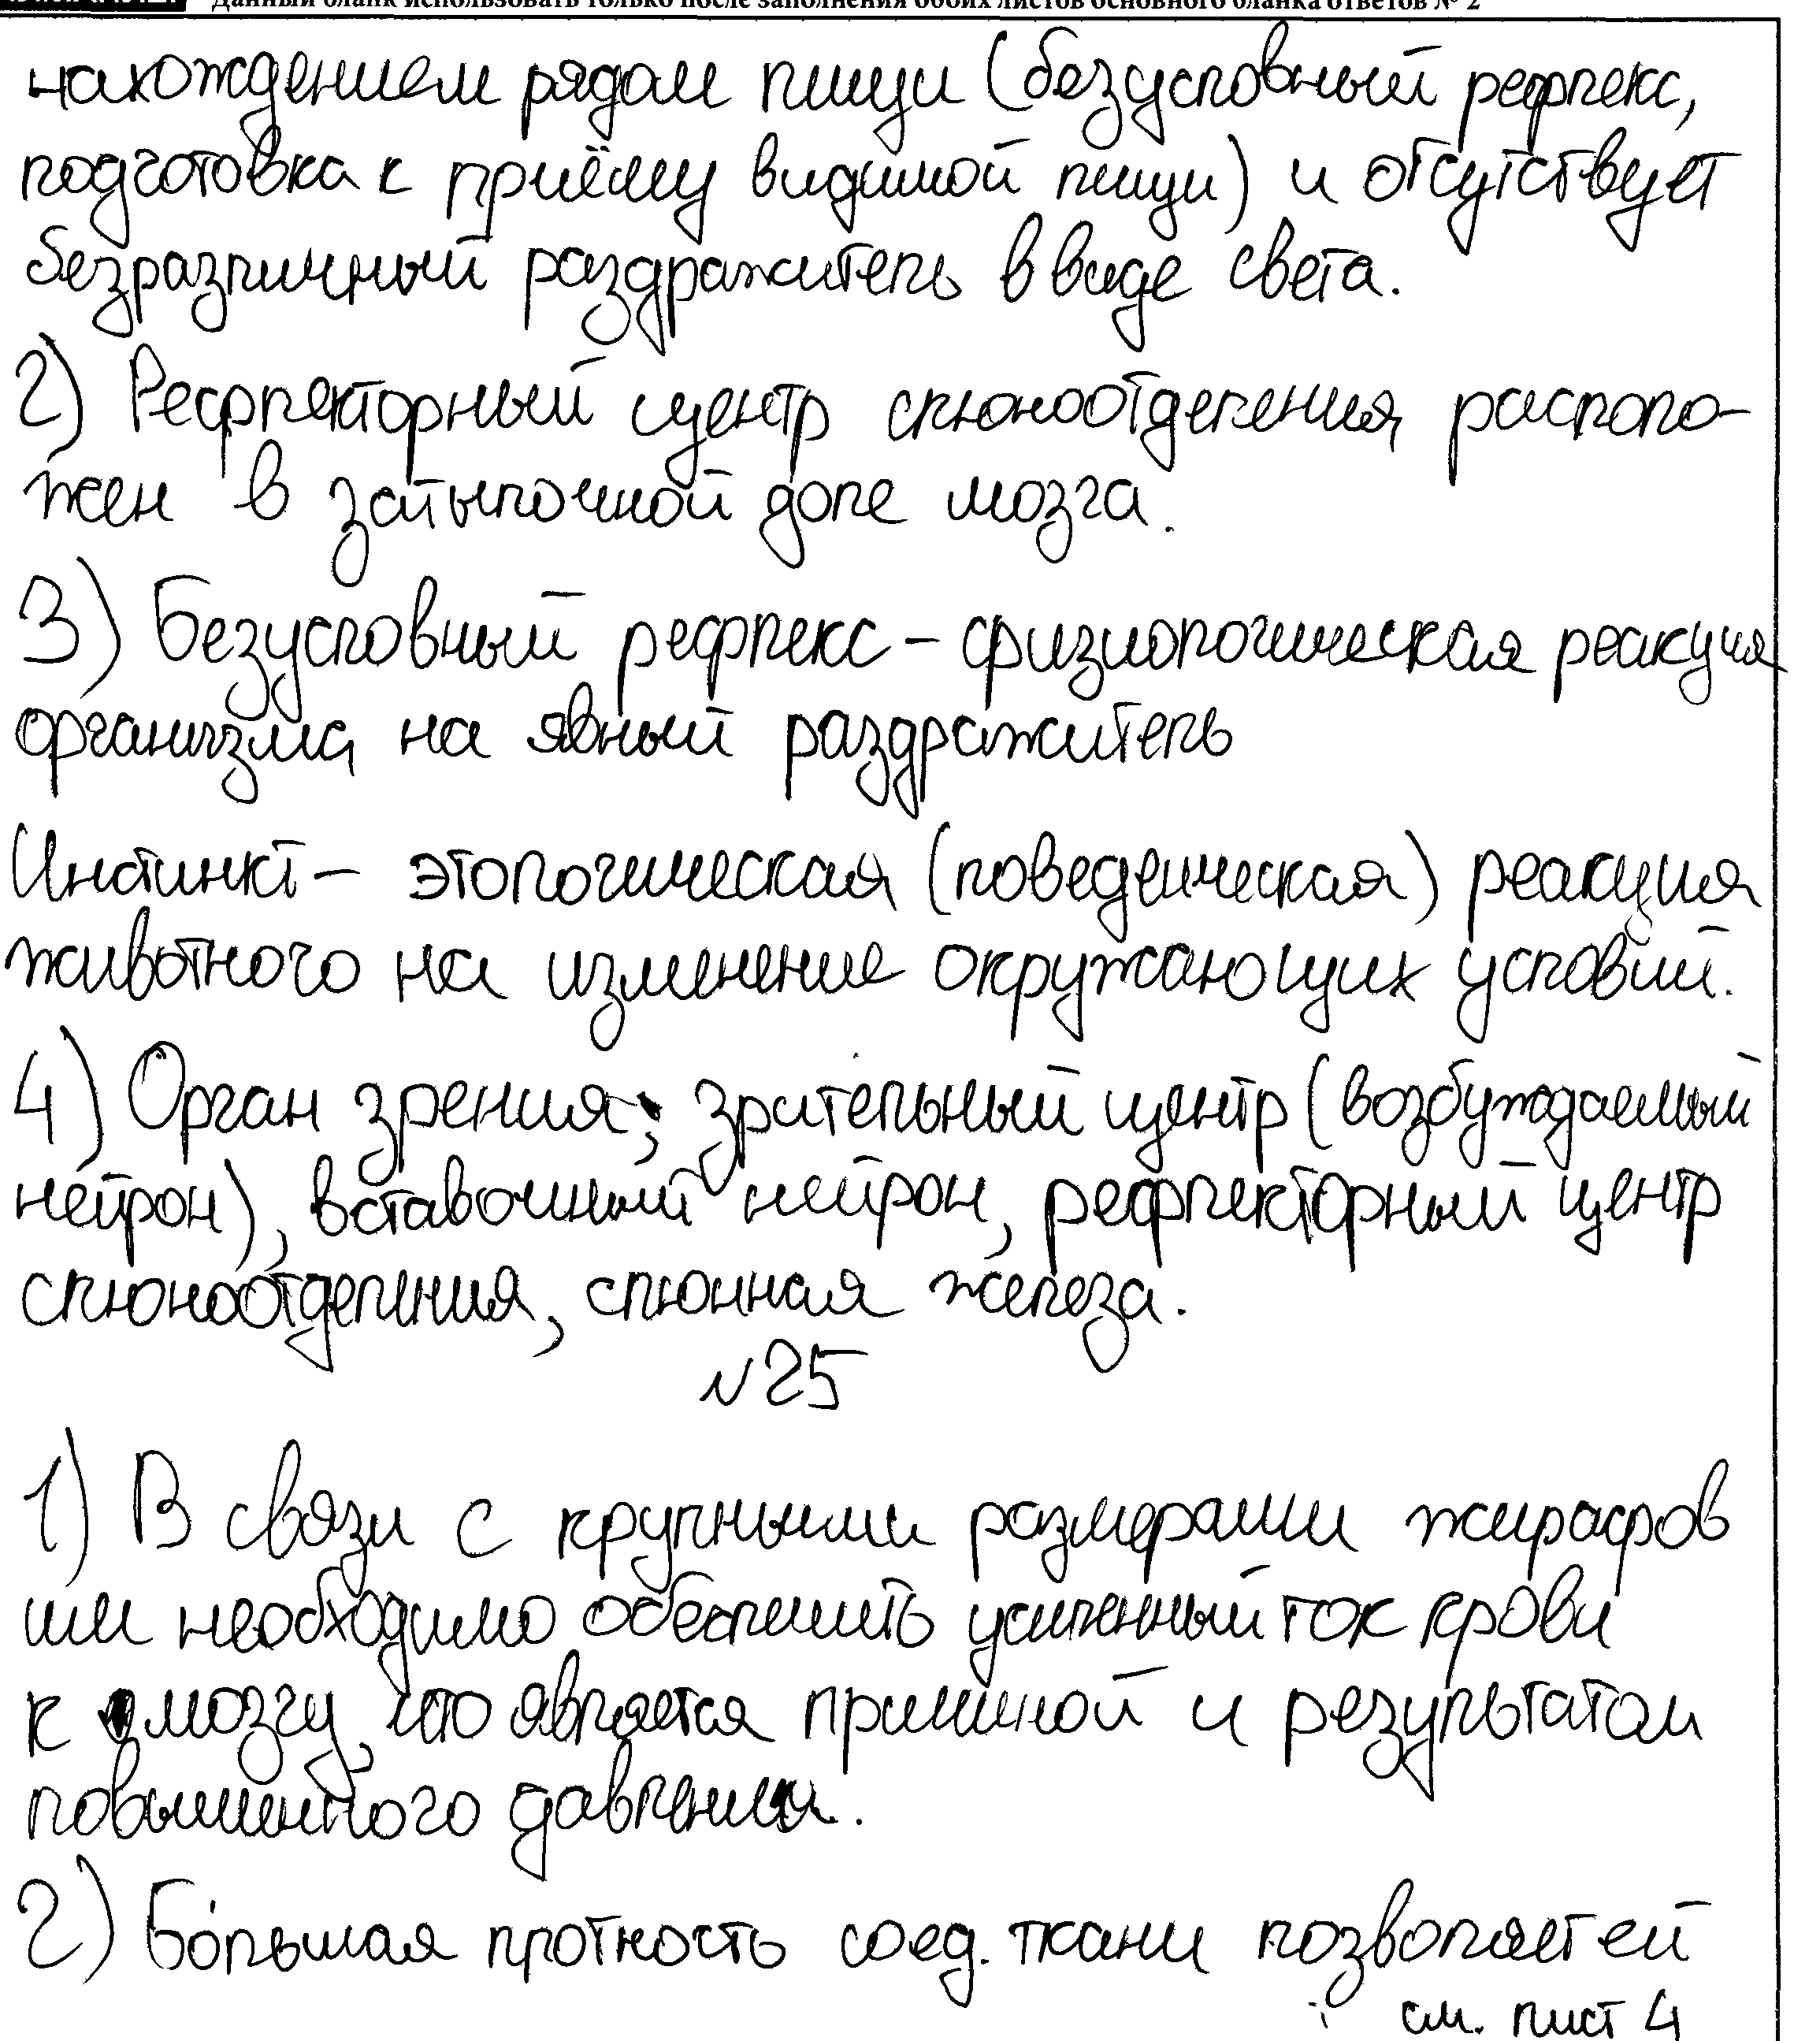 Данный бланк использовать только после заполнения обоих листов основного бланка ответов № 2
нахождением рядом пищи (безусловный рефлекс,
подготовка к приёму видимой пищи) и отсутствует
безразличный раздражитель в виде света.
2) Рефлекторный центр слюноотделения располо-
жен в затылочной доле мозга.
3) Безусловный рефлекс – физиологическая реакция
организма на явный раздражитель
Инстинкт – этологическая (поведенческая) реакция
животного на изменение окружающих условий.
4) Орган зрения; зрительный центр (возбуждаемый
нейрон), вставочный нейрон, рефлекторный центр
слюноотделения, слюнная железа.
№25
1) В связи с крупными размерами жирафов
им необходимо обеспечить усиленный ток крови
к мозгу, что является причиной и результатом
повышенного давления.
2) Бо́льшая плотность соед. ткани позволяет ей
см. лист 4